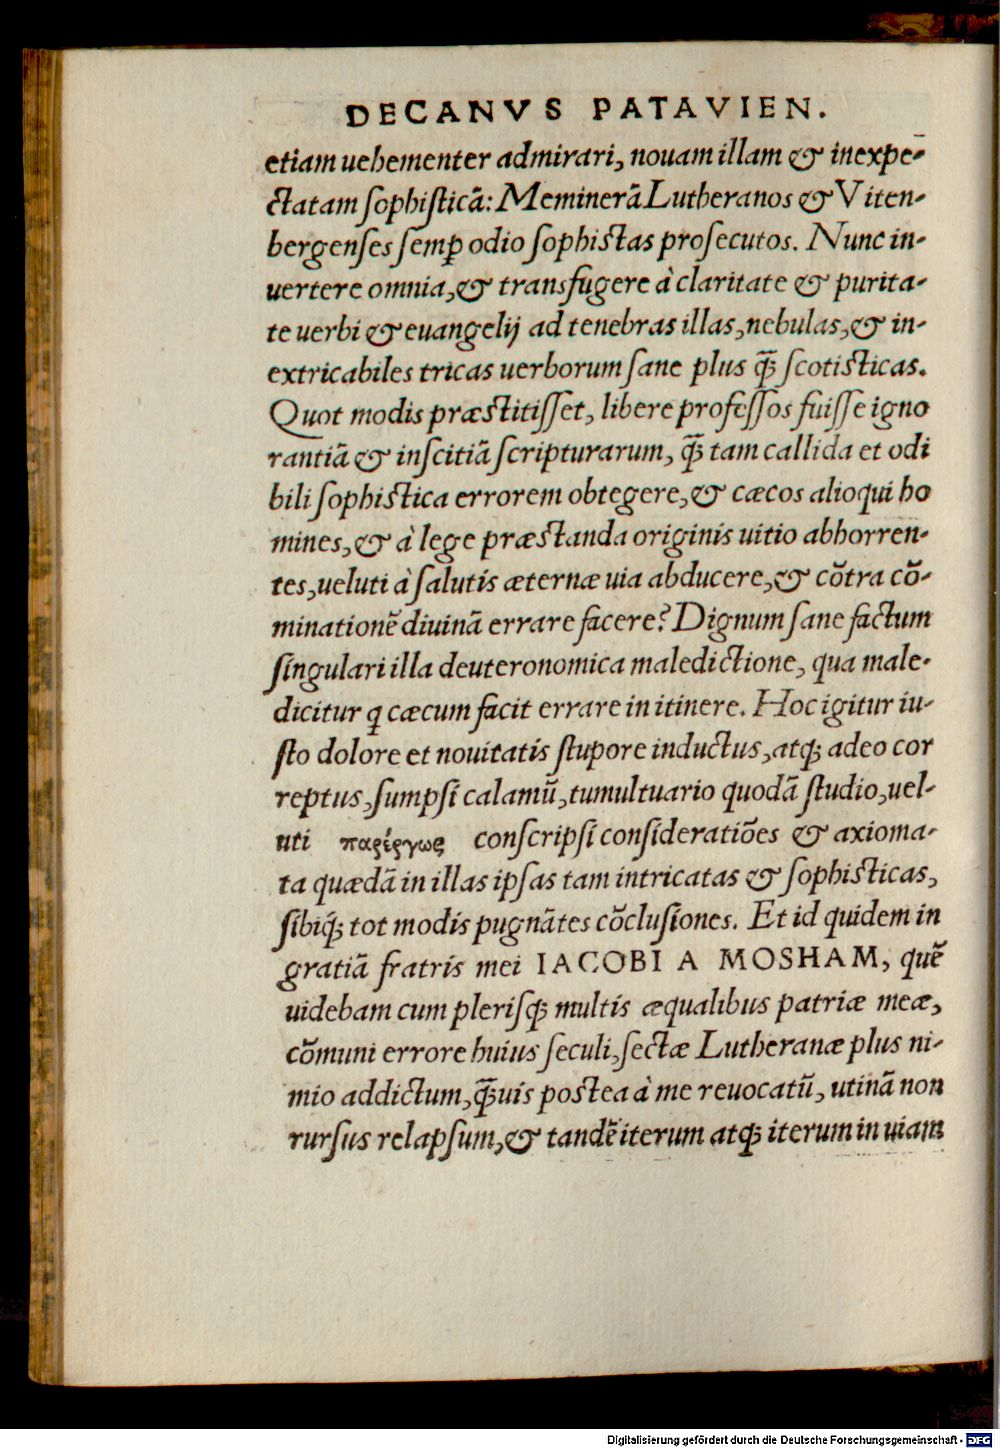 DECANVS PATAVIEN.
etiam uehementer admirari, nouam illam & inexpe-
ctatam ſophiſticā: Meminerā Lutheranos & Viten-
bergenſes ſemꝑ odio ſophiſtas proſecutos. Nunc in-
uertere omnia, & transfugere à claritate & purita-
te uerbi & euangelij ad tenebras illas, nebulas, & in-
extricabiles tricas uerborum ſane plus q̃ꝫ ſcotiſticas.
Quot modis præſtitiſſet, libere profeſſos fuiſſe igno
rantiā & inſcitiā ſcripturarum, q̃ꝫ tam callida et odi
bili ſophiſtica errorem obtegere, & cæcos alioqui ho
mines, & à lege præſtanda originis uitio abhorren-
tes, ueluti à ſalutis æternæ uia abducere, & cōtra cō-
minationē diuinā errare facere? Dignum ſane factum
ſingulari illa deuteronomica maledictione, qua male-
dicitur ꝗ cæcum facit errare in itinere. Hoc igitur iu-
ſto dolore et nouitatis ſtupore inductus, atqꝫ adeo cor
reptus, ſumpſi calamū, tumultuario quodā ſtudio, uel-
uti παρέργως conſcripſi conſideratiōes & axioma-
ta quædā in illas ipſas tam intricatas & ſophiſticas,
ſibiqꝫ tot modis pugnātes cōcluſiones. Et id quidem in
gratiā fratris mei IACOBI A MOSHAM, quē
uidebam cum pleriſqꝫ multis æqualibus patriæ meæ,
cōmuni errore huius ſeculi, ſectæ Lutheranæ plus ni-
mio addictum, q̃ꝫuis poſtea à me reuocatū, utinā non
rurſus relapſum, & tandē iterum atqꝫ iterum in uiam
Digitalisierung gefördert durch die Deutsche Forschungsgemeinschaft - DFG